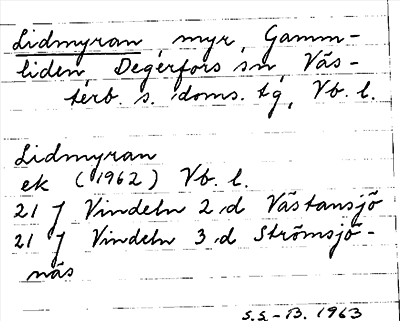 Lidmyran, myr, Gamm-
liden, Degerfors sn, Väs-
terb. s. doms. tg, Vb. l.
Lidmyran
ek (1962) Vb. l.
21 J Vindeln 2 d Västansjö
21 J Vindeln 3 d Strömsjö-
näs
S.S-B. 1963